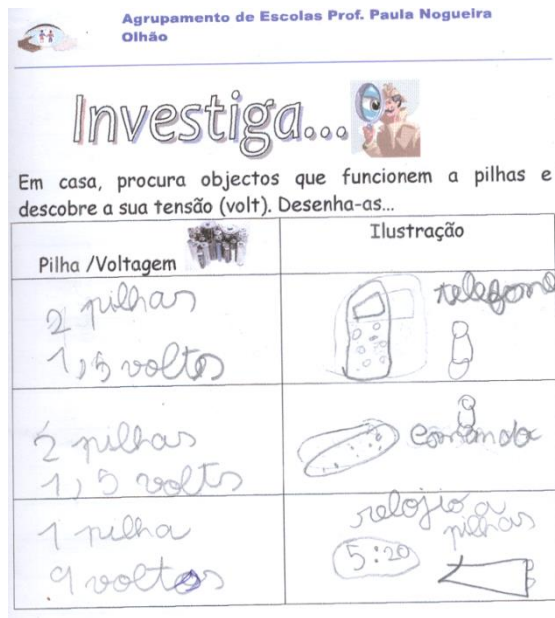 Agrupamento de Escolas Prof. Paula Nogueira
Olhão
Investiga...
Em casa, procura objectos que funcionem a pilhas e
descobre a sua tensão (volt). Desenha-as...
Pilha /Voltagem
Ilustração
2 pilhas
1,5 voltes
telefone
2 pilhas
1,5 volts
comando
1 pilha
9 voltes
relojio a
pilhas
5:20